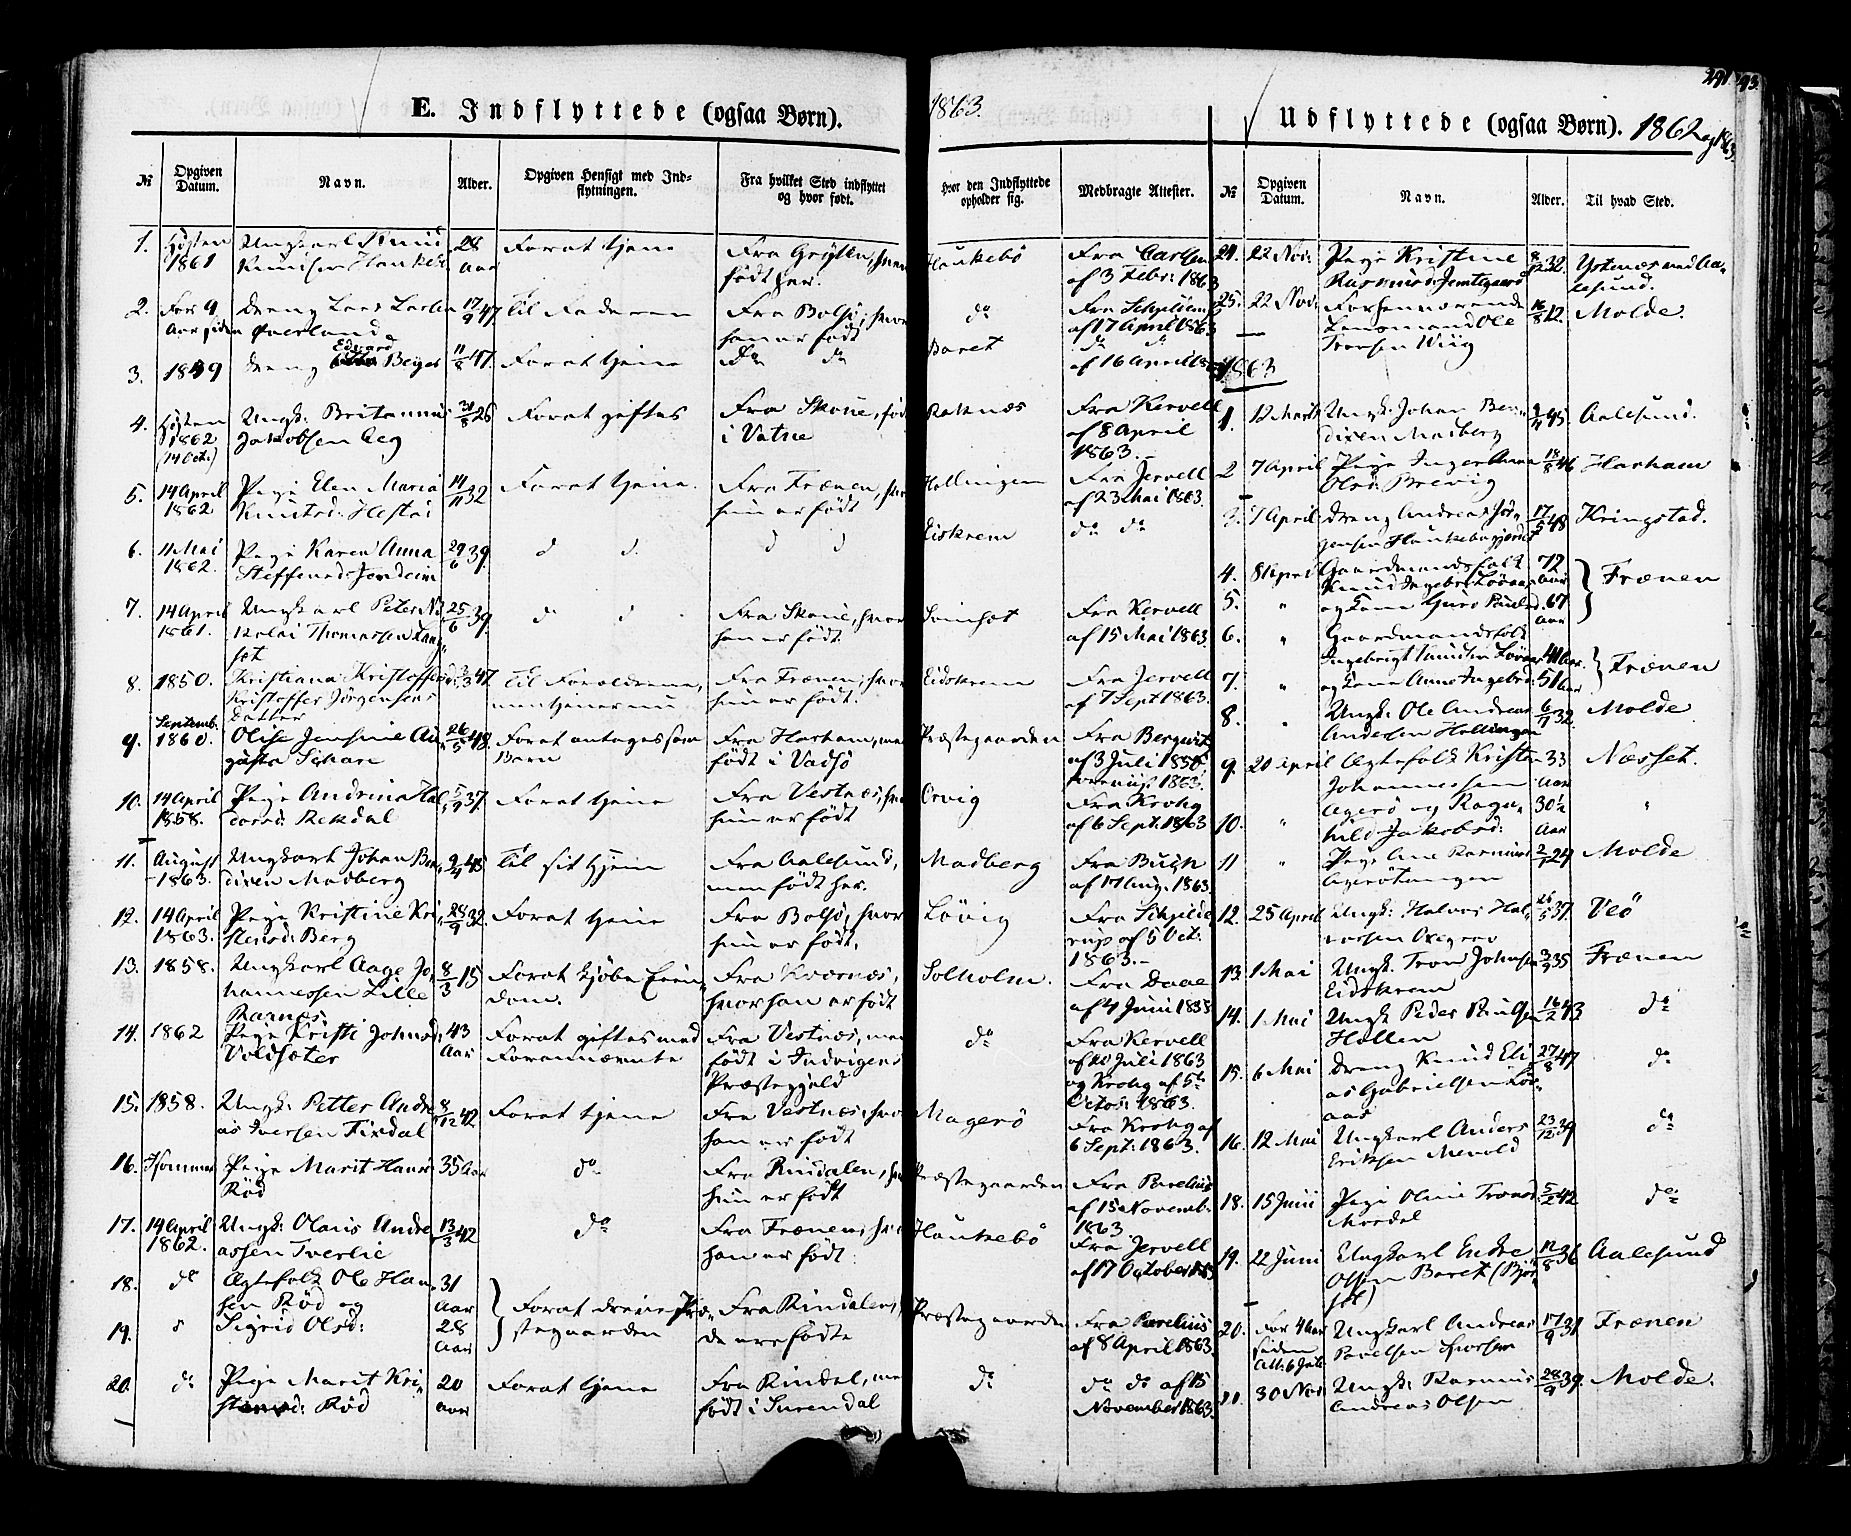 E. Indflyttede (ogsaa Børn).
1863.
№
Opgiven Datum.
Navn.
Alder.
Opgiven Hensigt med Ind-
flytningen.
Fra hvilket Sted indflyttet
og hvor født.
Hvor den Indflyttede
opholder sig.
Medbragte Attester.
1. Høsten 1861
Ungkarl Knud
Knudsen Haukebø
28 Aar
Forat tjene
Fra Grytten, hvor
født her.
Haukebø
Fra
af 3 Febr: 1863
2. For 9
Aar siden
Dreng Lars Larsen
Øverland
17/9 47
Til Faderen
Fra Bolsø, hvor
han er født
do
af 17 April 1863
3. 1849
Dreng Edvard Beyer
11/8 47
Forat tjene
do do
Baret
do do
af 16 April
4. Høsten
1862
(14 Oct.)
Ungk: Britannus
Jakobsen Aeg
31/8 26
Forat giftes
Fra Skoue, født
i Vatne
Raknæs
Fra Kervell
af 8 April
1863.
5. 14 April
1862
Pige Elen Maria
Knutsd: Hestøi
14/11 32
Forat tjene.
Fra Frænen, hvor
hun er født
Hollingen
Fra Jervell
af 23 Mai 1863.
6. 11 Mai
1862.
Pige Karen Anna
Steffensd: Jendem
29/6 39.
d d.
d d
Eiskrem
do do
7. 14 April
1861.
Ungkarl Peter Ni
kolai Thomassen Lang
set
25/6 39
d d
Fra Skoue, hvor
han er født.
Fra Kervell
af 15 Mai 1863.
8. 1850.
Kristiana Kristoffersd:
Kristoffer Jørgensens
Datter
3/3 47
Til Forældrene,
men tjener nu
Fra Frænen, hvor
hun er født.
Eidskrem
Fra Jervell
af 7 Sept 1863.
9. Septemb.
1860.
Olise Jensine Au
gusta
26/5 48
Forat antages som
Barn
Fra Harham, men
født i Vadsø
Præstegaarden
Fra
af 3 Juli 1850,
1863.
10. 14 April
1858.
Pige Andrina Hal
dorsd: Rekdal
5/9 37
Forat tjene
Fra Vestnæs, hvor
hun er født
Orvig
Fra Krohg
af 6 Sept: 1863
11. August
1863.
Ungkarl Johan Ben
dixen Madberg
9/4 45
Til sit Hjem
Fra Aalesund,
men født her.
Madberg
Fra Buch
af 17 Aug. 1863.
12. 14 April
1863.
Pige Kristine Kri
stensd: Berg
28/9 32.
Forat tjene
Fra Bolsø, hvor
hun er født.
Løvig
Fra Schjelde
rup af 5 Oct.
1863.
13. 1858.
Ungkarl Aage Jo
hannessen Lille
Rarnes
8/3 15
Forat kjøbe Eien
dom.
Fra Kværnæs,
hvor han er født
Solholm.
Fra Daae
af 4 Juni 1858
14. 1862
Pige Kristi Johnsd:
Voldsæter
43 Aar
Forat giftes med
Forannævnte
Fra Vestnæs, men
født i Indvigens
Præstegjeld
do
Fra Kervell
af 10 Juli 1863
og Krohg af 5te
Octob: 1863.
15. 1858.
Ungk: Petter Andre
as Iversen Fixdal
8/12 42
Forat tjene
Fra Vestnæs, hvor
han er født
Magerø
Fra Krohg af
6 Sept: 1863.
16. I Sommer
Pige Marit Hansd
Rød
35 Aar
do
Fra Rindalen, hvor
hun er født
Præstegaarden
Fra Parelius
af 15 Novemb.
1863.
17. 14 April
1862.
Ungk: Olaus Andre
assen Tverlie
13/3 42
do
Fra Frænen, hvor
han er født
Haukebø
Fra Jervell
af 17 October 1863
18. do
Ægtefolk Ole Han
sen Rød og
31 Aar
19. d
Sigrid Olsd:
28 Aar
Forat drive Præ
stegaarden
Fra Rindalen,
de ere fødte
Præstegaarden
Fra Parelius
af 8 April 1863.
20. do
Pige Marit Kri
stensd: Rød
20 Aar
Forat tjene
Fra Rindal, men
født i Surendal
do
do do af 15
November 1863.
Udflyttede (ogsaa Børn). 1862 og 1863
№
Opgiven Datum.
Navn.
Alder.
Til hvad Sted.
24. 22 Nov:
Pige Kristine
Rasmusd: Jemtegaard
8/12 32.
Ystenæs ved Aa-
lesund.
25. 22 Nov:
Forhenværende
Lensmand Ole
Tronsen Wiig
16/8 12.
Molde.
1863
1. 12 Marts
Ungk: Johan Ben
dixen Madberg
9/4 45
Aalesund.
2 7 April
Pige Inger Anna
Olsd: Brevig
18/8 46
Harham
3. 7 April
Dreng Andreas Jør
gensen Haukebøgjerdet
17/5 48
Kringstad.
4. 8 April
Gaardmandsfolk
Knud Ingebr: Løvaas
72 Aar
5. "
og Kone Guro Paulsd.
67 Aar
Frænen
6. "
Gaardmandsfolk
Ingebrigt Knudsen Løvaas
41 Aar.
7. "
og Kone Anne Ingebrd:
51 Aar
Frænen
8. "
Ungk: Ole Andreas
Andersen Hollingen
6/1 32.
Molde
9. 20 April
Ægtefolk Kristen
Johannessen
33 Aar
Næsset.
10. "
Agerø og Ragn
hild Jakobsd:
30½ Aar
"
11 "
Pige Ane Rasmusd
Agerøtangen
2/7 24
Molde
12. 25 April
Ungk: Halvor Hal
vorsen Oxegrav
26/5 37.
Veø
13. 1 Mai
Ungk. Tron Johnsen
Eidskrem
3/9 35
Frænen
14. 1 Mai
Ungk Peder Paulsen
Hollen
16/2 43
do
15. 6 Mai
Dreng Knud Eli
as Gabrielsen Løv
aas
27/8 47
do
16. 12 Mai
Ungkarl Anders
Eriksen Mevold
23/12 39
do
18. 15 Juni
Pige Oline Tronsd
Mordal
5/2 42
do
19. 22 Juni
Ungkarl Endre
Olsen Baret (Bjør
set)
12/8 36
Aalesund
20. For 4 Aar
siden
Att: 6 Juli
Ungkarl Andreas
Paulsen
17/9 31
Frænen
21. 30 Nov
Ungk: Rasmus
Andreas Olsen
28/9 39.
Molde.